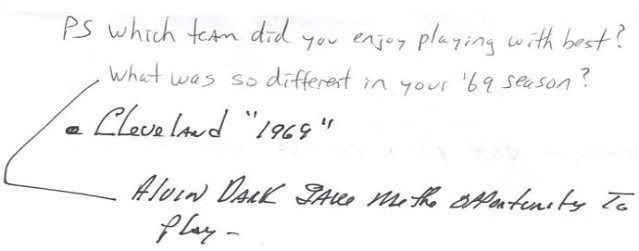 PS which team did you enjoy playing with best?
What was so different in your '69 season?
Cleveland "1969"
Alvin Dark gave me the opportunity To
play -